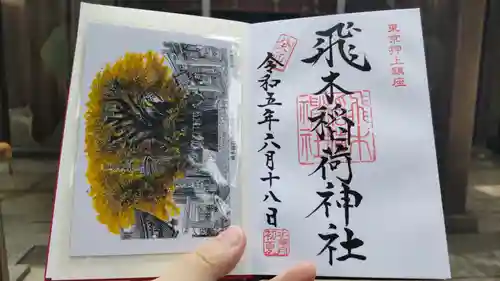 東京押上鎮座
飛木稲荷神社
飛木
稲荷
神社
令和五年六月十八日